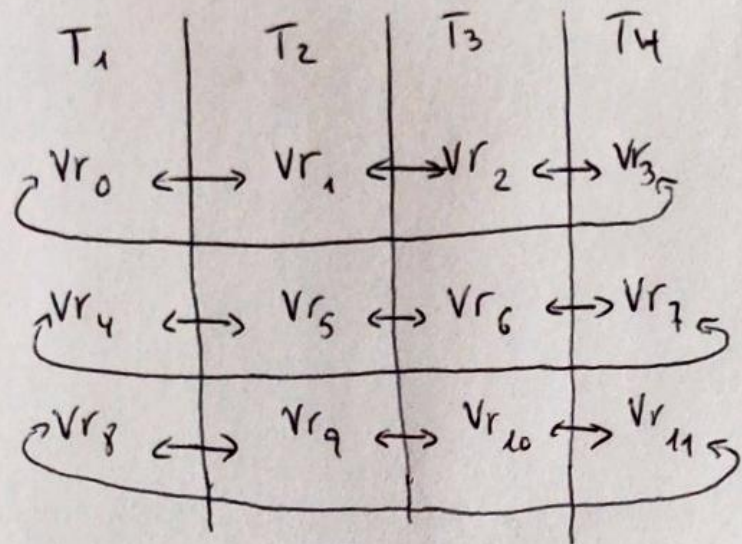 T₁ T₂ T₃ T₄
Vr₀ Vr₁ Vr₂ Vr₃
Vr₄ Vr₅ Vr₆ Vr₇
Vr₈ Vr₉ Vr₁₀ Vr₁₁